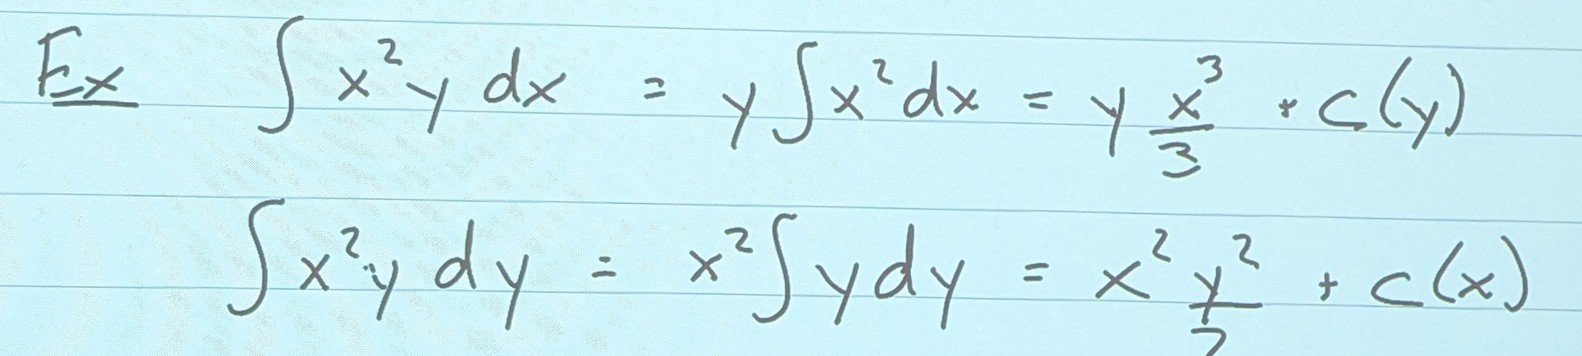 Ex ∫ x² y dx = y ∫ x² dx = y x³/3 + c(y)
∫ x² y dy = x² ∫ y dy = x² y²/2 + c(x)